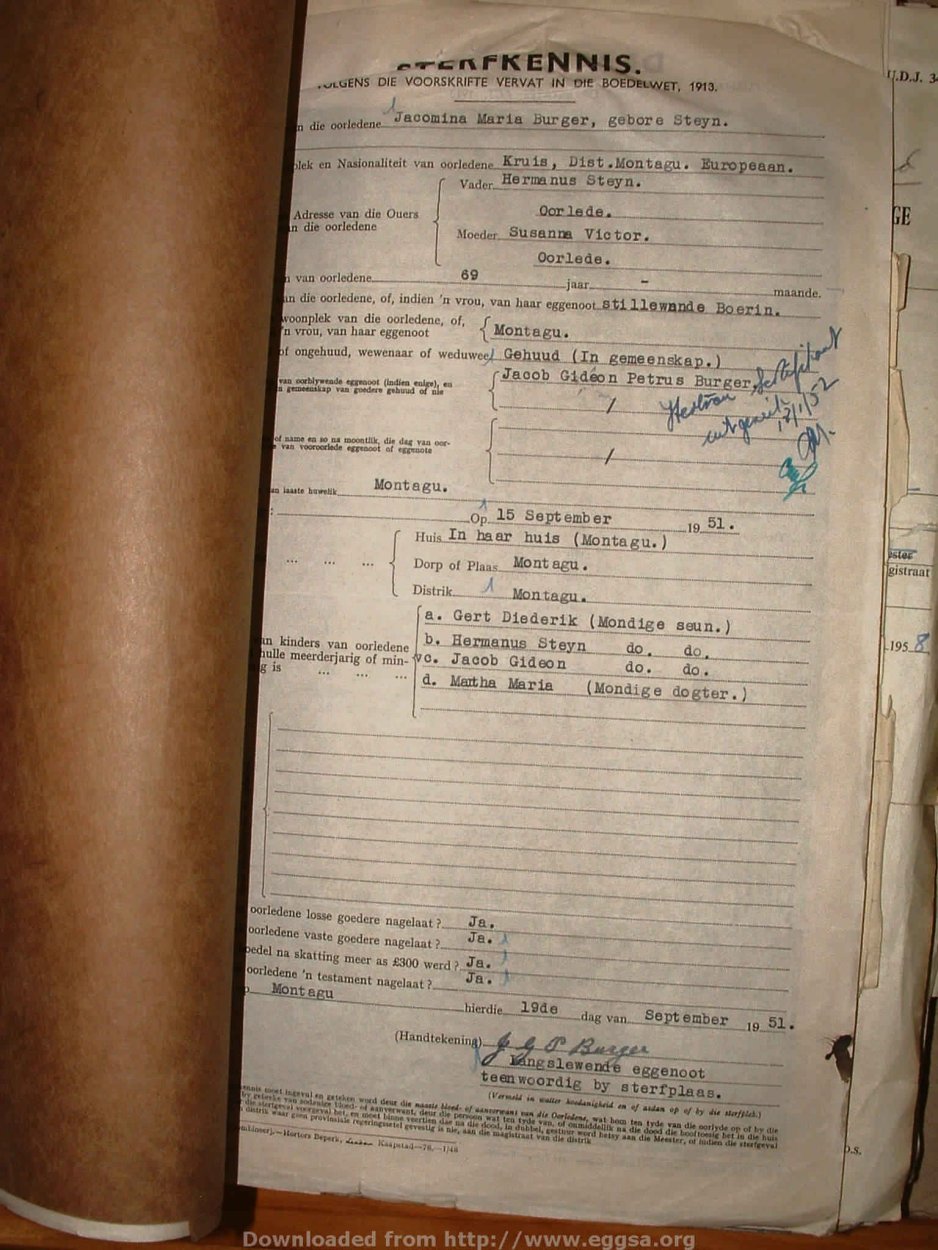 STERFKENNIS.
VOLGENS DIE VOORSKRIFTE VERVAT IN DIE BOEDELWET, 1913.
U.D.J.
n die oorledene Jacomina Maria Burger, gebore Steyn.
plek en Nasionaliteit van oorledene Kruis, Dist.Montagu. Europeaan.
Vader Hermanus Steyn.
Adresse van die Ouers Oorlede.
n die oorledene
Moeder Susanna Victor.
Oorlede.
GE
n van oorledene 69 jaar - maande.
an die oorledene, of, indien 'n vrou, van haar eggenoot stillewende Boerin.
woonplek van die oorledene, of,
'n vrou, van haar eggenoot Montagu.
of ongehuud, wewenaar of weduwee Gehuud (In gemeenskap.)
van oorblywende eggenoot (indien enige), en
n gemeenskap van goedere gehuud of nie
Jacob Gideon Petrus Burger.
/
uitgereik
12/1/52
of name en so na moontlik, die dag van oor-
e van vooroorlede eggenoot of eggenote
/
an laaste huwelik Montagu.
Op 15 September 19 51.
Huis In haar huis (Montagu.)
Dorp of Plaas Montagu.
Distrik Montagu.
gistraat
a. Gert Diederik (Mondige seun.)
an kinders van oorledene b. Hermanus Steyn do. do.
hulle meerderjarig of min- c. Jacob Gideon do. do.
g is ... ... ... d. Martha Maria (Mondige dogter.)
195 8
oorledene losse goedere nagelaat ? Ja.
oorledene vaste goedere nagelaat ? Ja.
oedel na skatting meer as £300 werd ? Ja.
oorledene 'n testament nagelaat ? Ja.
Montagu hierdie 19de dag van September 19 51.
(Handtekening) J G P Burger
Langslewende eggenoot
teenwoordig by sterfplaas.
(Vermeld in watter hoedanigheid en of aldan op of by die sterfplek.)
Hortors Beperk, Kaapstad—
D.S.
Downloaded from http://www.eggsa.org